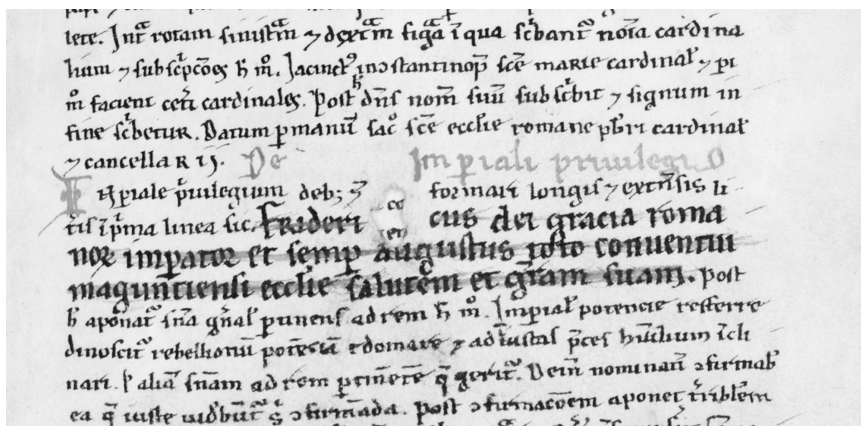 lete. Int rotam sinistm ⁊ dextm figa ī qua sc̄bant᷑ noīa cardina
lium ⁊ subsc̄pcōes h̄ m̊. Jacinct᷒ in ɔstantinop̄ sc̄e marie cardinal̄ ⁊ p̄i
m̊ facient cet̄i cardinales. Post h̄ dn̄s nom̄ suū subsc̄bit ⁊ signum in
fine sc̄betur. Datum p̄ manū sac̊ sc̄e eccl̄ie romane pb̄ri cardinal̄
⁊ cancellarij. De Imp̄iali priuilegio
Imp̄iale p̄uilegium deb; formari longis ⁊ extēsis li
t̄is ī p̄ma linea sic. frideri cus dei gracia roma
noꝝ imp̄ator et semp̄ augustus toto conuentui
magunt̄iensi eccl̄ie salutem et gr̄am suam. Post
h̄ aponat᷑ sn̄a gn̄al̄ p̄tinens ad rem h̄ m̊. Imp̄ial̄ potencie refferre
dinoscit᷑ rebellionū potēciā edomare ⁊ ad iustas p̄ces humilium īcli
nari. alia sn̄am ad rem p̄tinētē q̄ gerit᷑. Dein̄ nominan̄ ɔfirmab᷑
ea q̄ iuste uidb̄unt᷑ ɔfirmāda. Post ɔfirmacōem aponet t̄ribl̄em